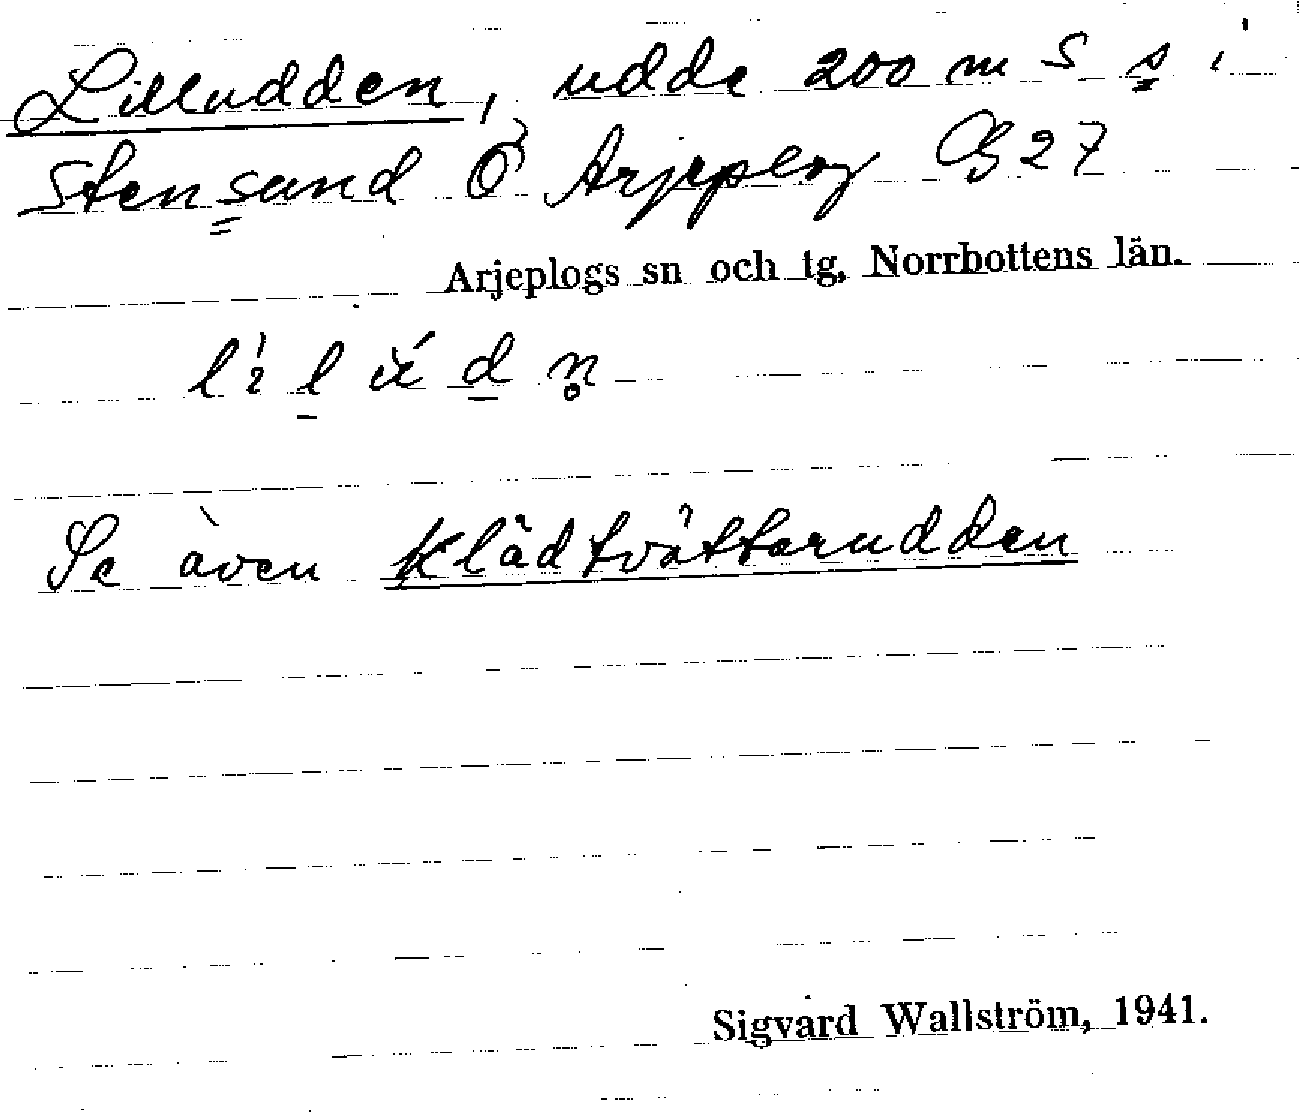 Lilludden, udde 200 m S s i
Stensund Ö Arjeplog G 27
Arjeplogs sn och tg, Norrbottens län.
Se även Klädtvättarudden
Sigvard Wallström, 1941.